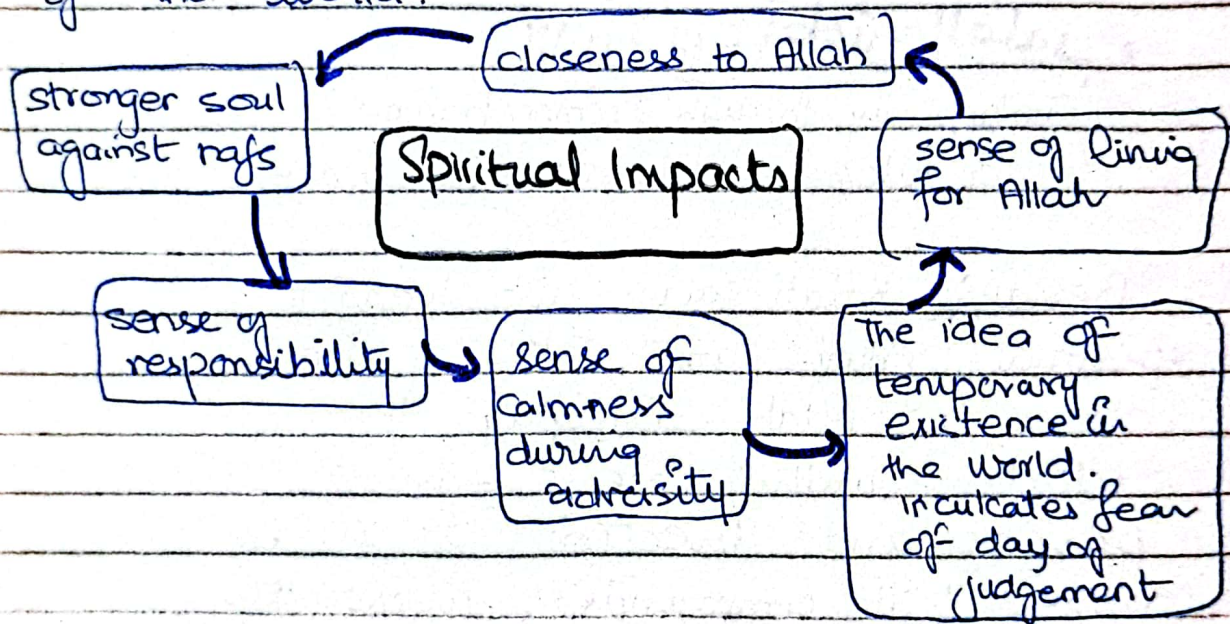 closeness to Allah
stronger soul
against nafs
Spiritual Impacts
sense of living
for Allah
sense of
responsibility
sense of
calmness
during
adversity
The idea of
temporary
existence in
the world.
inculcates fear
of day of
judgement